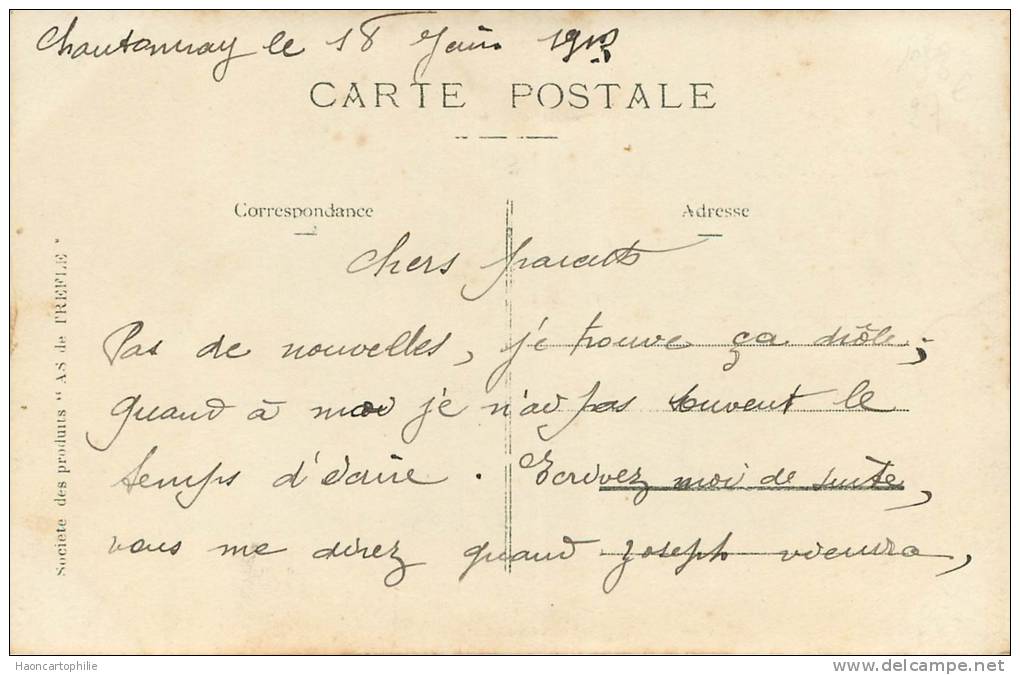 Chantonnay le 18 Juin
CARTE POSTALE
Correspondance
Adresse
Chers parents
Pas de nouvelles, je trouve ça drôle,
quand à moi je n'ai pas souvent le
temps d'écrire. Ecrivez moi de suite,
vous me direz quand Joseph viendra,
Société des produits "AS de TREFLE"
Haoncartophile
www.delcampe.net